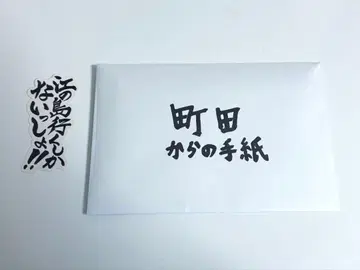 江の島行くしか
ないっしょ!!
町田
からの手紙